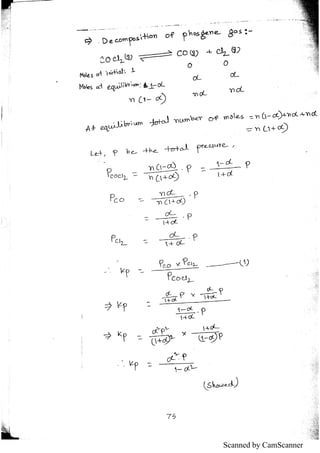 ⇒ Decomposition of phosgene gas :-
COCl₂(g) ⇌ CO(g) + Cl₂(g)
Moles at initial: 1 0 0
Moles at equilibrium: 1-α α α
n(1-α) nα nα
At equilibrium total number of moles = n(1-α)+nα+nα
= n(1+α)
Let, P be the total pressure,
P_COCl₂ = n(1-α)/n(1+α) . P = 1-α/1+α P
P_CO = nα/n(1+α) . P
= α/1+α . P
P_Cl₂ = α/1+α . P
∴ Kp = P_CO × P_Cl₂ / P_COCl₂ ———(1)
⇒ Kp = α/1+α P × α/1+α P / 1-α/1+α . P
⇒ Kp = α²P²/(1+α)² × 1+α/(1-α)P
∴ Kp = α².P/1-α²
(Showed)
75
Scanned by CamScanner